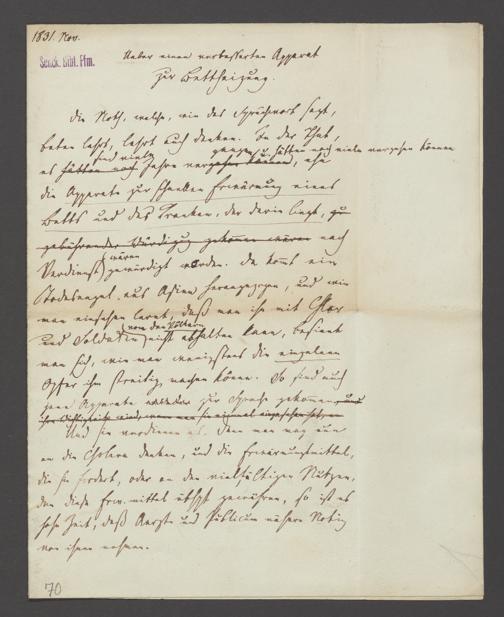 1831. Nov.
Senck. Bibl. Ffm.
Ueber einen verbesserten Apparat
zur Bettheizung.
Die Noth, welche, wie das Sprüchwort sagt,
beten lehrt, lehrt auch denken. In der That,
es hätten noch viele Jahre vergehen können, ehe
sind viele vergangen, u. hätten noch viele vergehen können
die Apparate zur schnellen Erwärmung eines
Betts und des Kranken, der darin liegt, zu
gebührender Würdigung gekommen wären nach
Verdienst wären gewürdigt worden. Da kommt ein
Todesengel aus Asien herangezogen, und wie
man einsehen lernt, daß man ihn mit Chlor
und Soldaten von den Völkern nicht abhalten kann, besinnt
man sich, wie man wenigstens die einzelnen
Opfer ihm streitig machen könne. So sind auch
jene Apparate zur Sprache gekommen und
Und sie verdienen es. Denn man mag nun
an die Cholera denken, und die Erwärmungsmittel,
die sie fordert, oder an den vielfältigen Nutzen,
den diese Erw.mittel gewähren, so ist es
hohe Zeit, daß Aerzte und Publicum nähere Notiz
von ihnen nehmen.
70